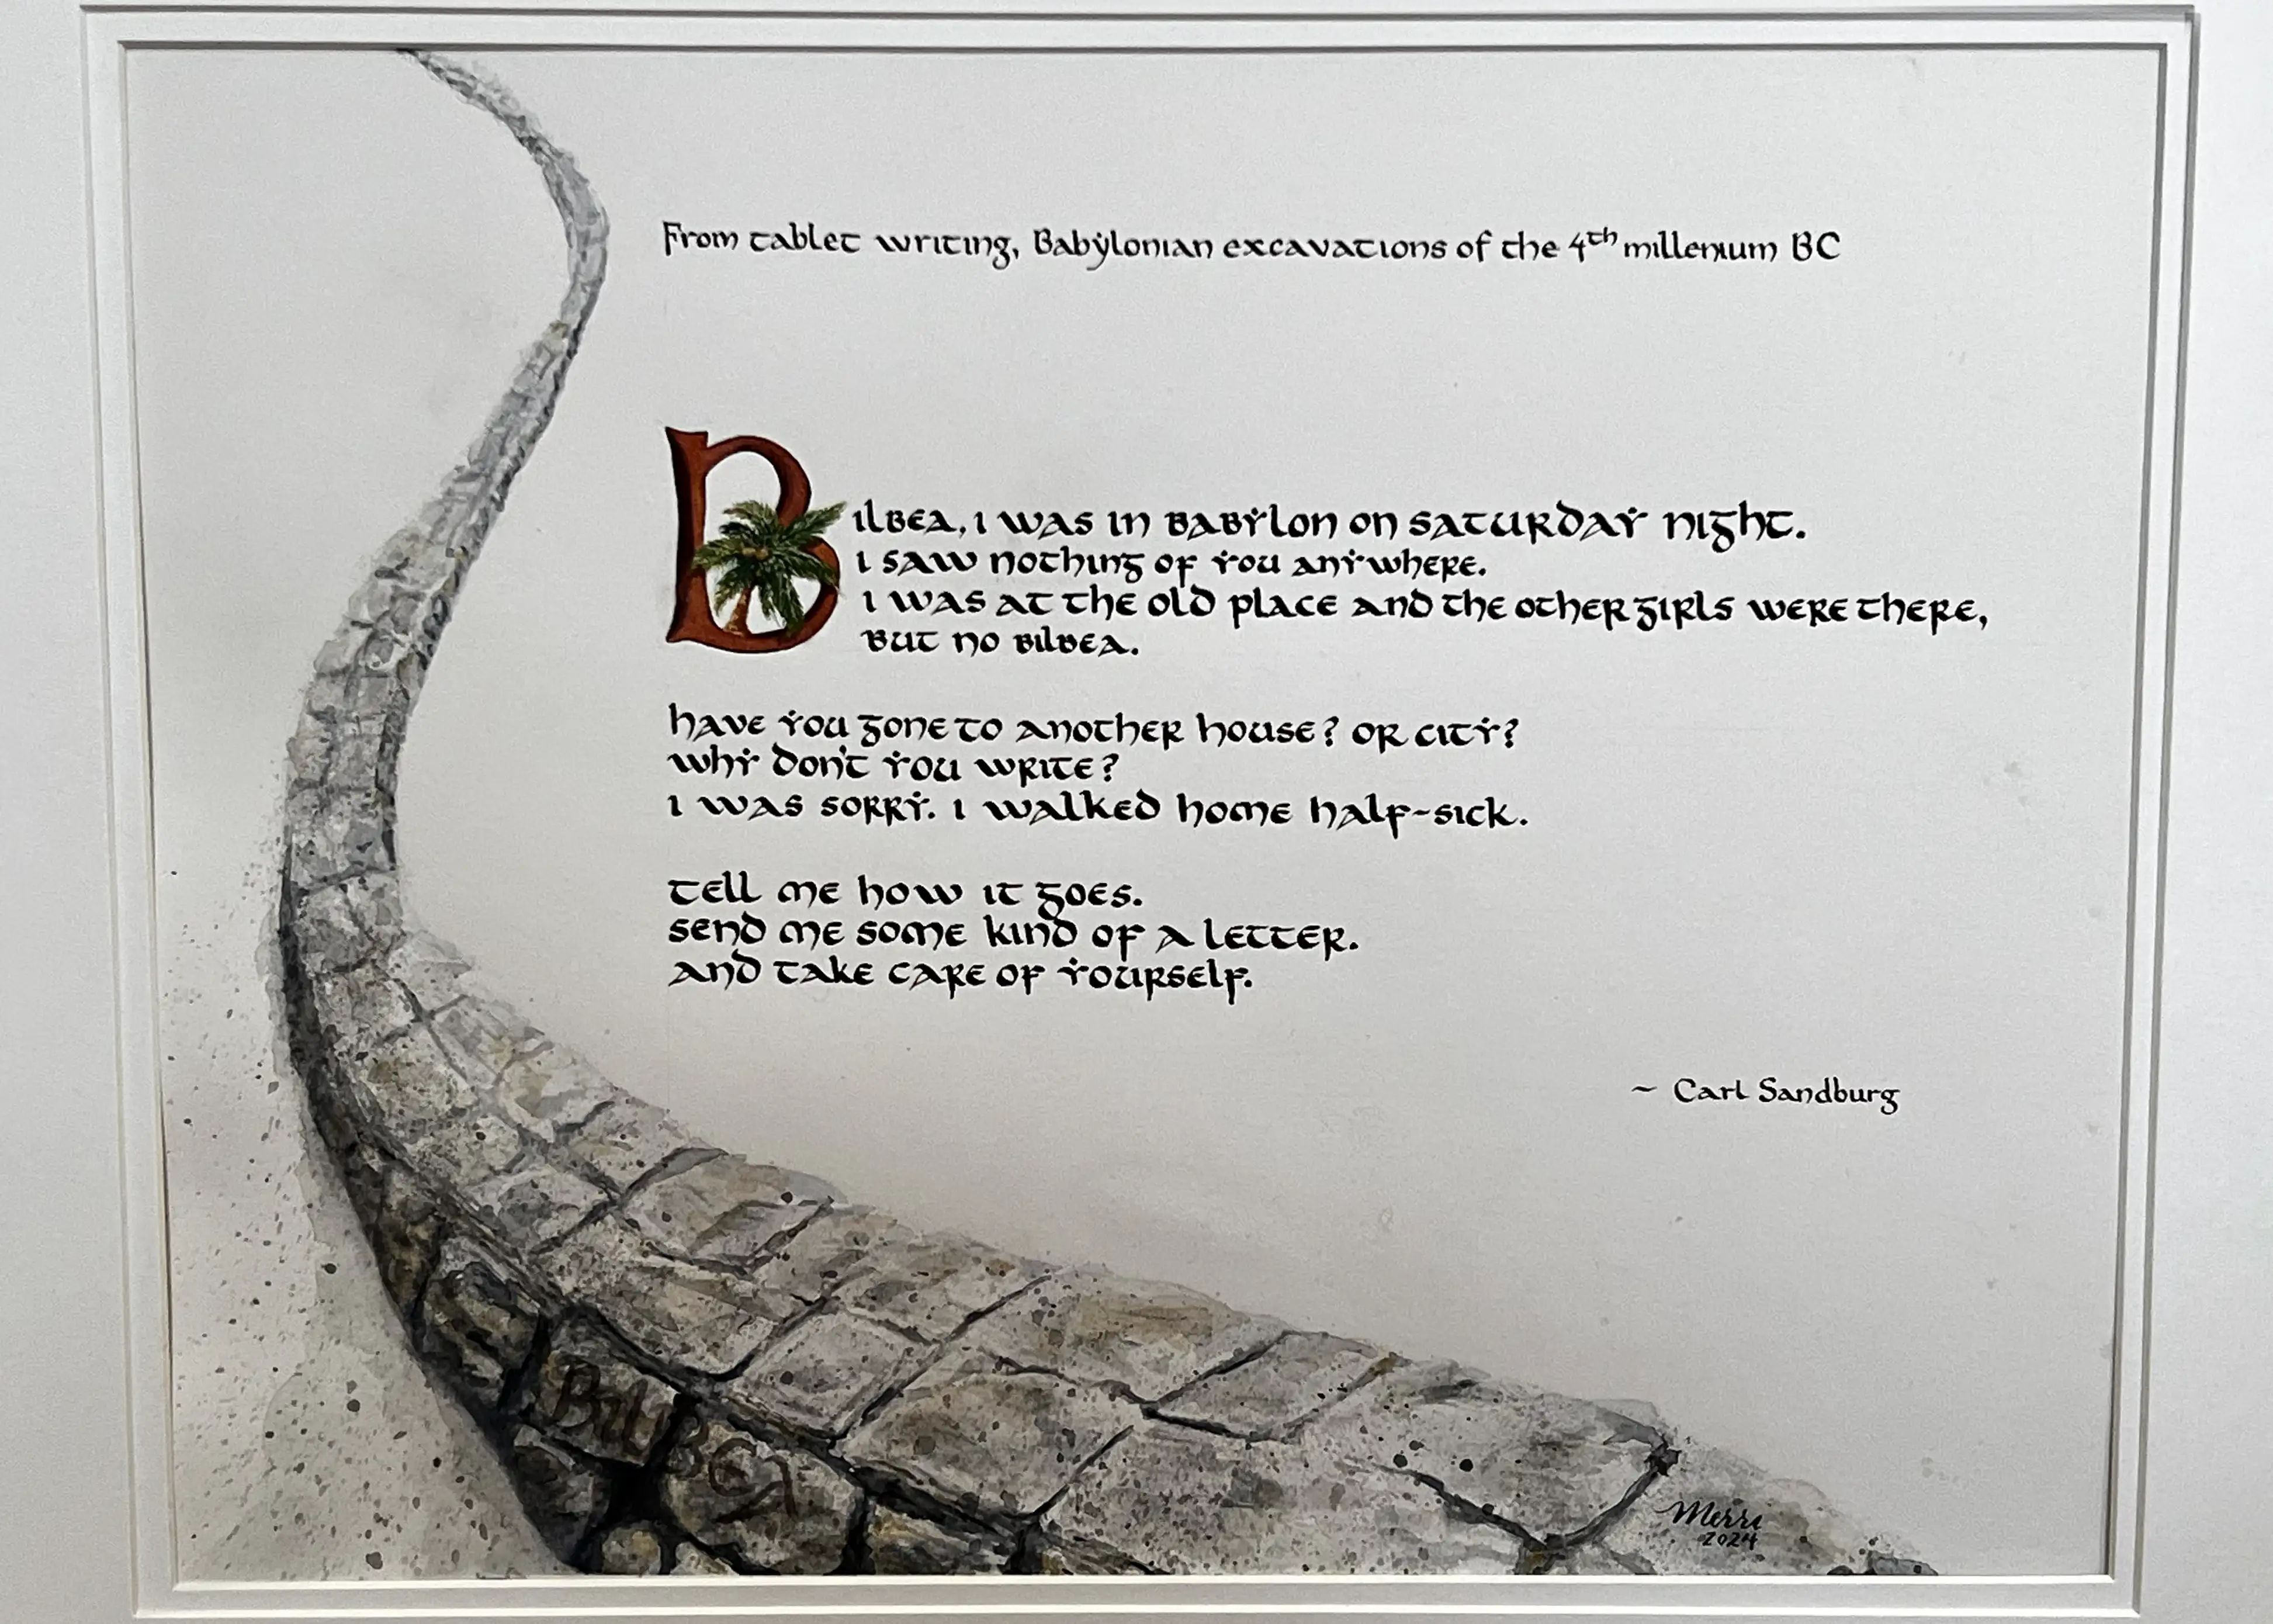 From tablet writing, Babylonian excavations of the 4th millenium BC
Bilbea, i was in babylon on saturday night.
i saw nothing of you anywhere.
i was at the old place and the other girls were there,
but no bilbea.
have you gone to another house? or city?
why don't you write?
i was sorry. i walked home half-sick.
tell me how it goes.
send me some kind of a letter.
and take care of yourself.
~ Carl Sandburg
BilBEA
Merri
2024